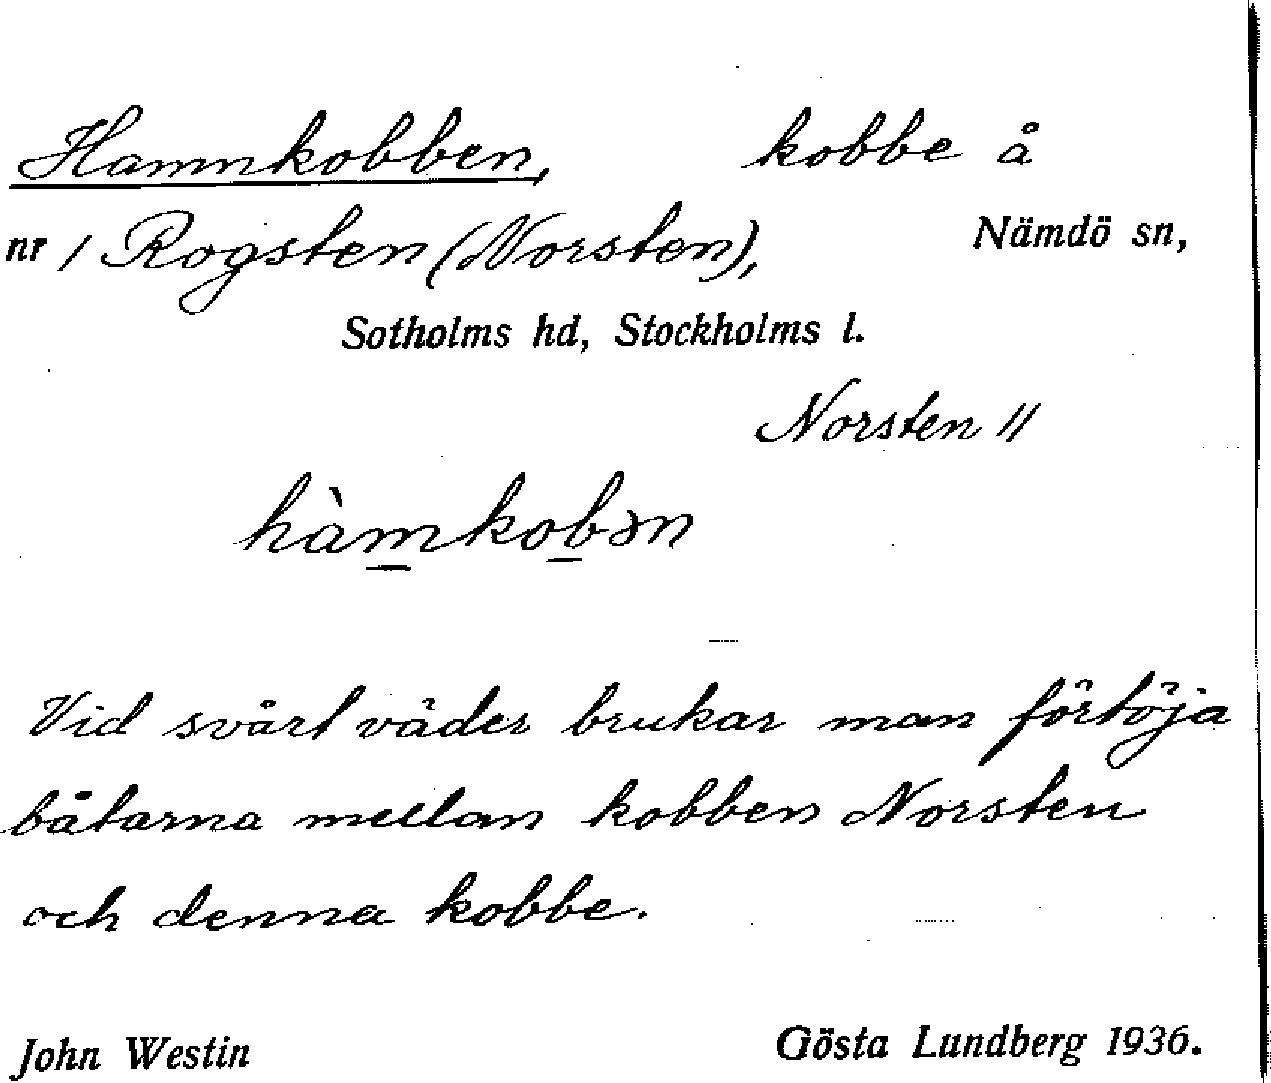 Hamnkobben, kobbe å
nr 1 Rogsten (Norsten), Nämdö sn,
Sotholms hd, Stockholms l.
Norsten 11
hàm̲kob̲ən
Vid svårt väder brukar man förtöja
båtarna mellan kobben Norsten
och denna kobbe.
John Westin Gösta Lundberg 1936.